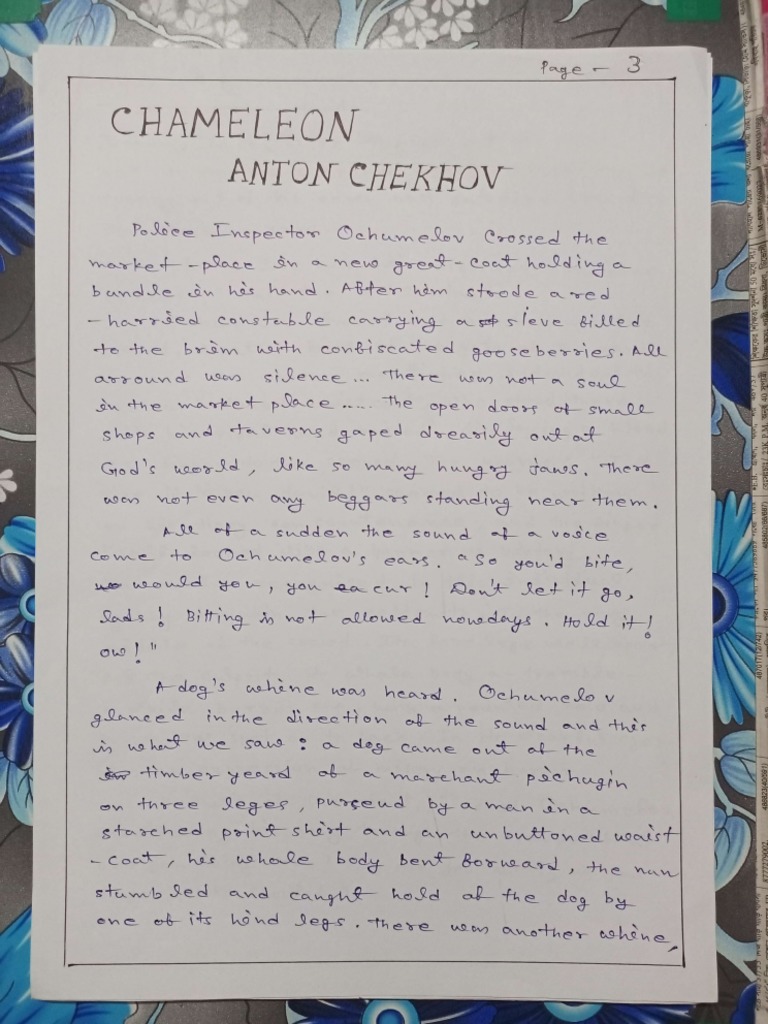 Page - 3
CHAMELEON
ANTON CHEKHOV
Police Inspector Ochumelov Crossed the
market-place in a new great-coat holding a
bundle in his hand. After him strode a red
-harried constable carrying a sieve filled
to the brim with confiscated gooseberries. All
arround was silence... There was not a soul
in the market place ..... The open doors of small
shops and taverns gaped drearily out at
God's world, like so many hungry jaws. There
was not even any beggars standing near them.
All of a sudden the sound of a voice
come to Ochumelov's ears. "So you'd bite,
would you, you cur! Don't let it go,
lads! Bitting is not allowed nowdays. Hold it!
ow!"
A dog's whine was heard. Ochumelov
glanced in the direction of the sound and this
is what we saw: a dog came out of the
timber yeard of a marchant pichugin
on three leges, purseud by a man in a
starched print shirt and an unbuttoned waist
-coat, his whale body bent forward, the nan
stumbled and caught hold of the dog by
one of its hind legs. There was another whine,